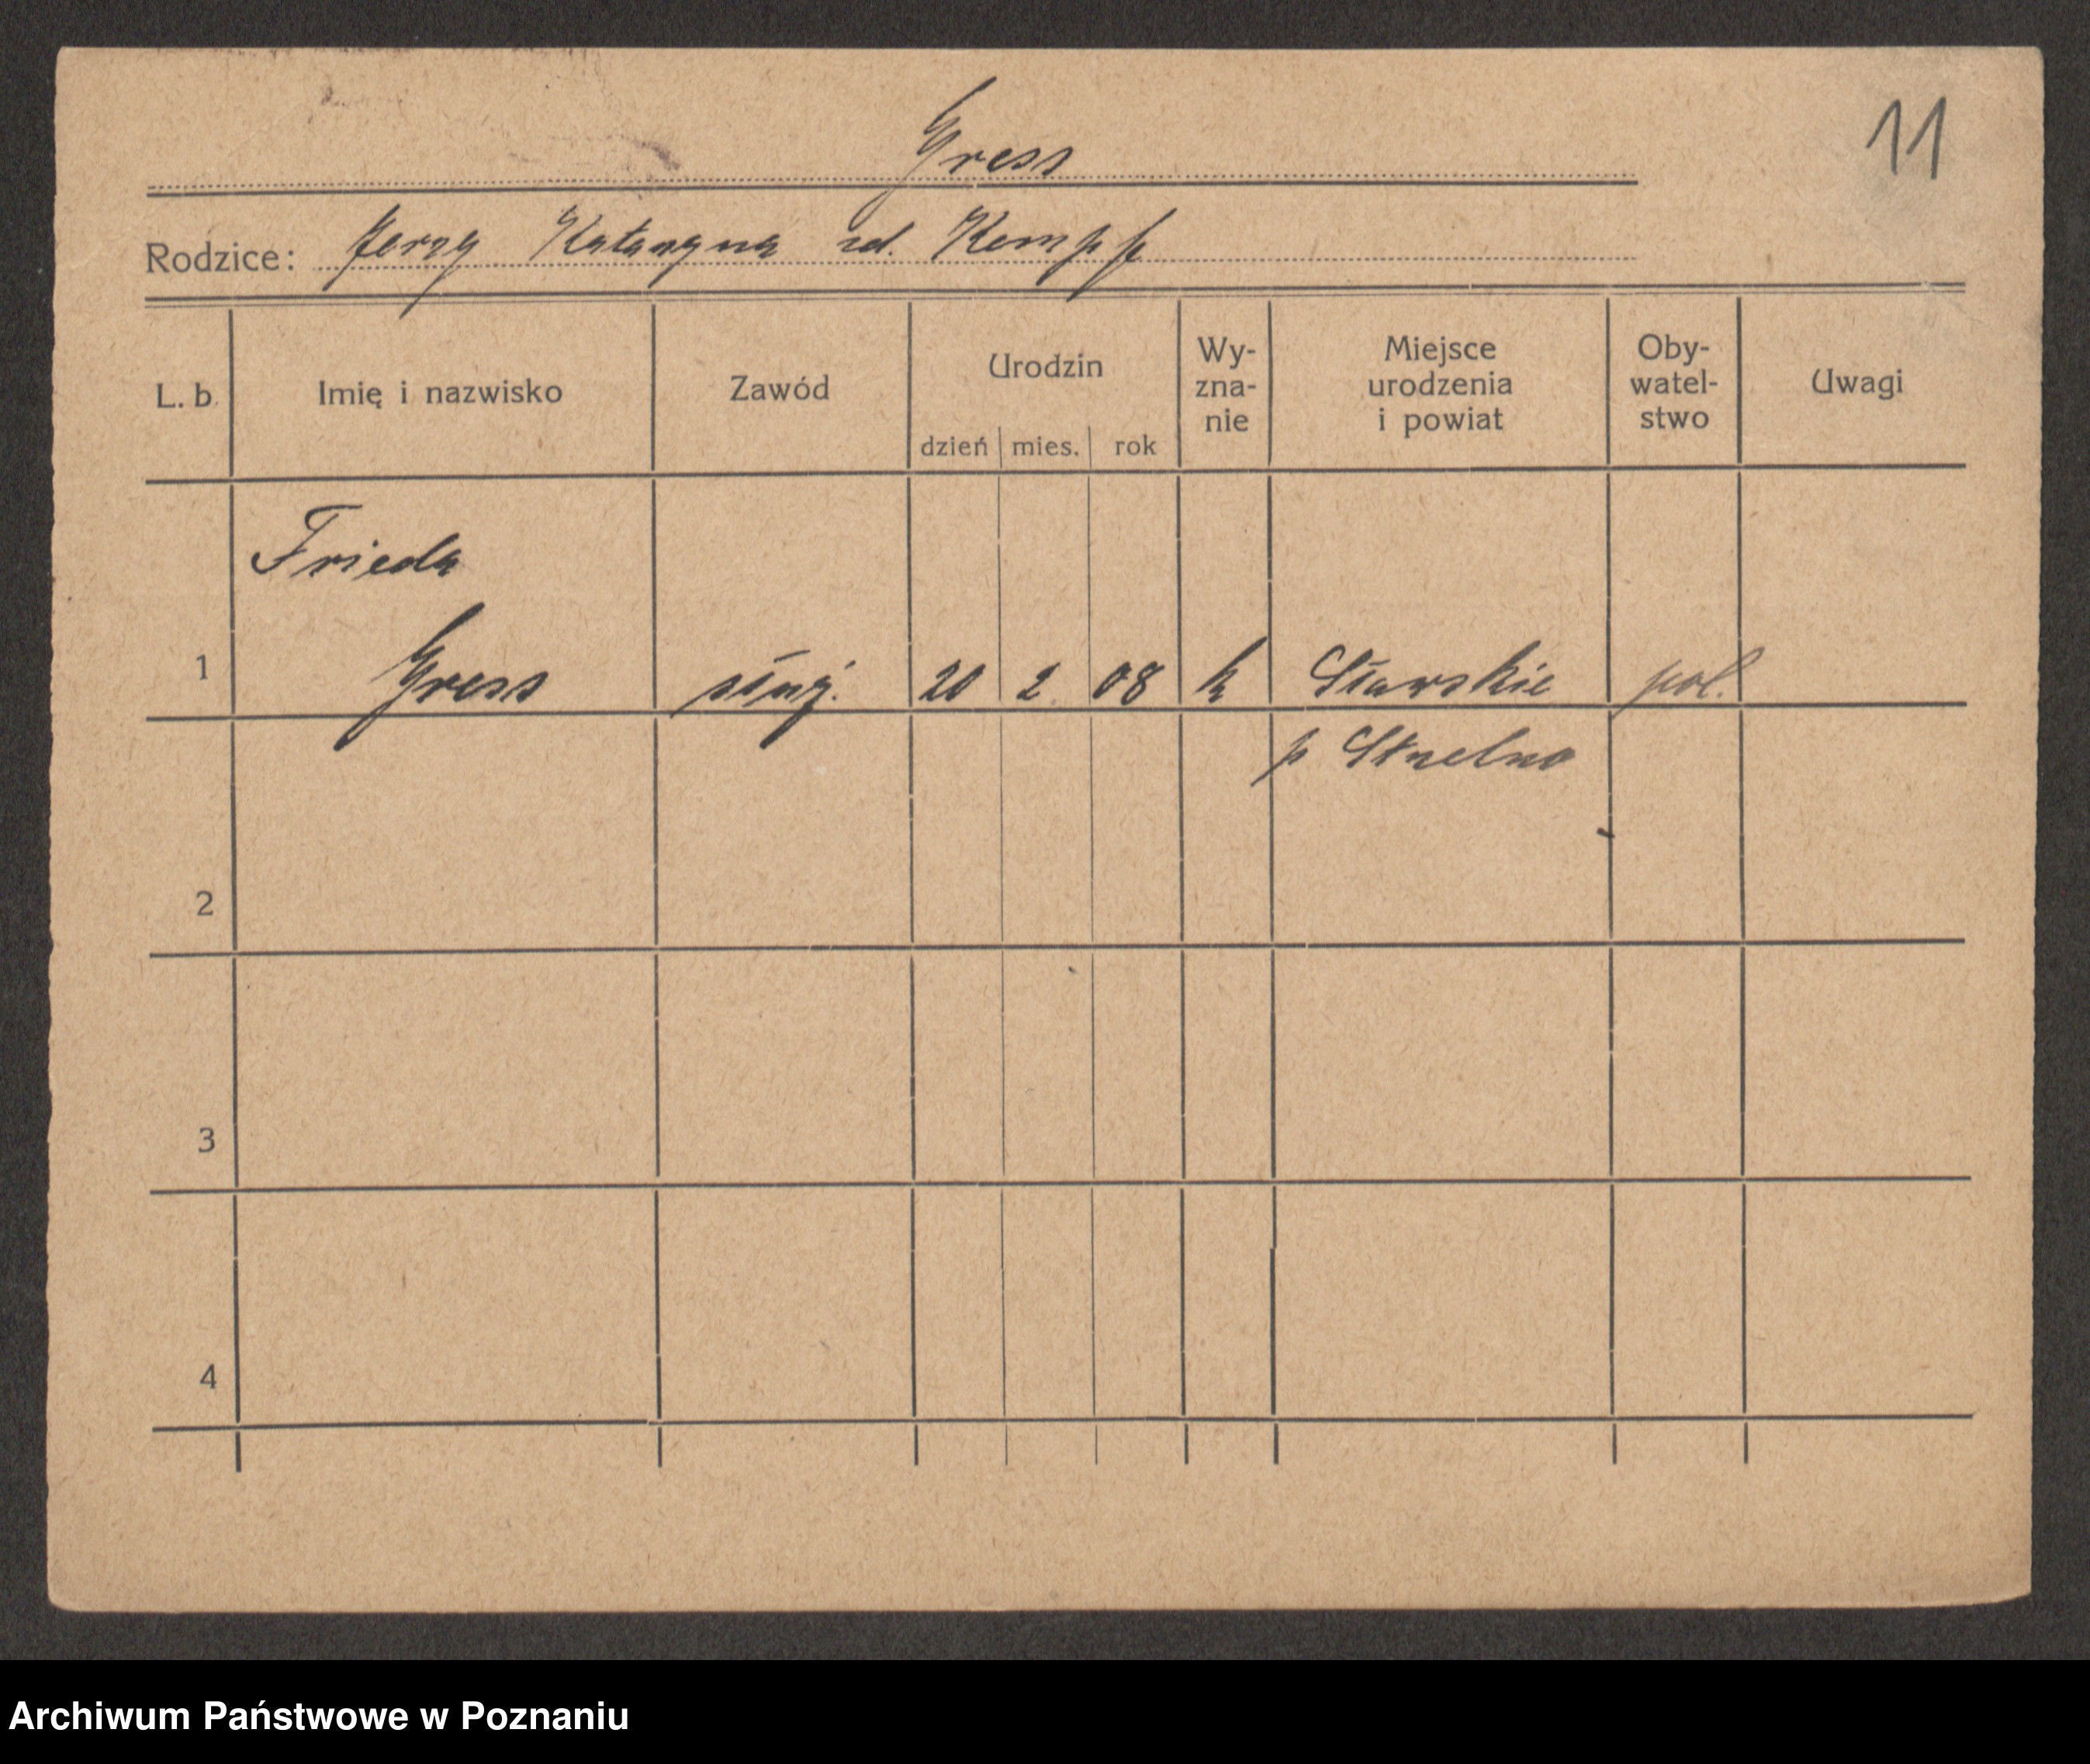 Gress
11
Rodzice: Jerzy Katarzyna zd. Kempf
L. b. Imię i nazwisko Zawód Urodzin dzień mies. rok Wy-zna-nie Miejsce urodzenia i powiat Oby-watel-stwo Uwagi
Frieda
1 Gress służ. 20 2 08 k Sławskie pol.
p Strzelno
2
3
4
Archiwum Państwowe w Poznaniu